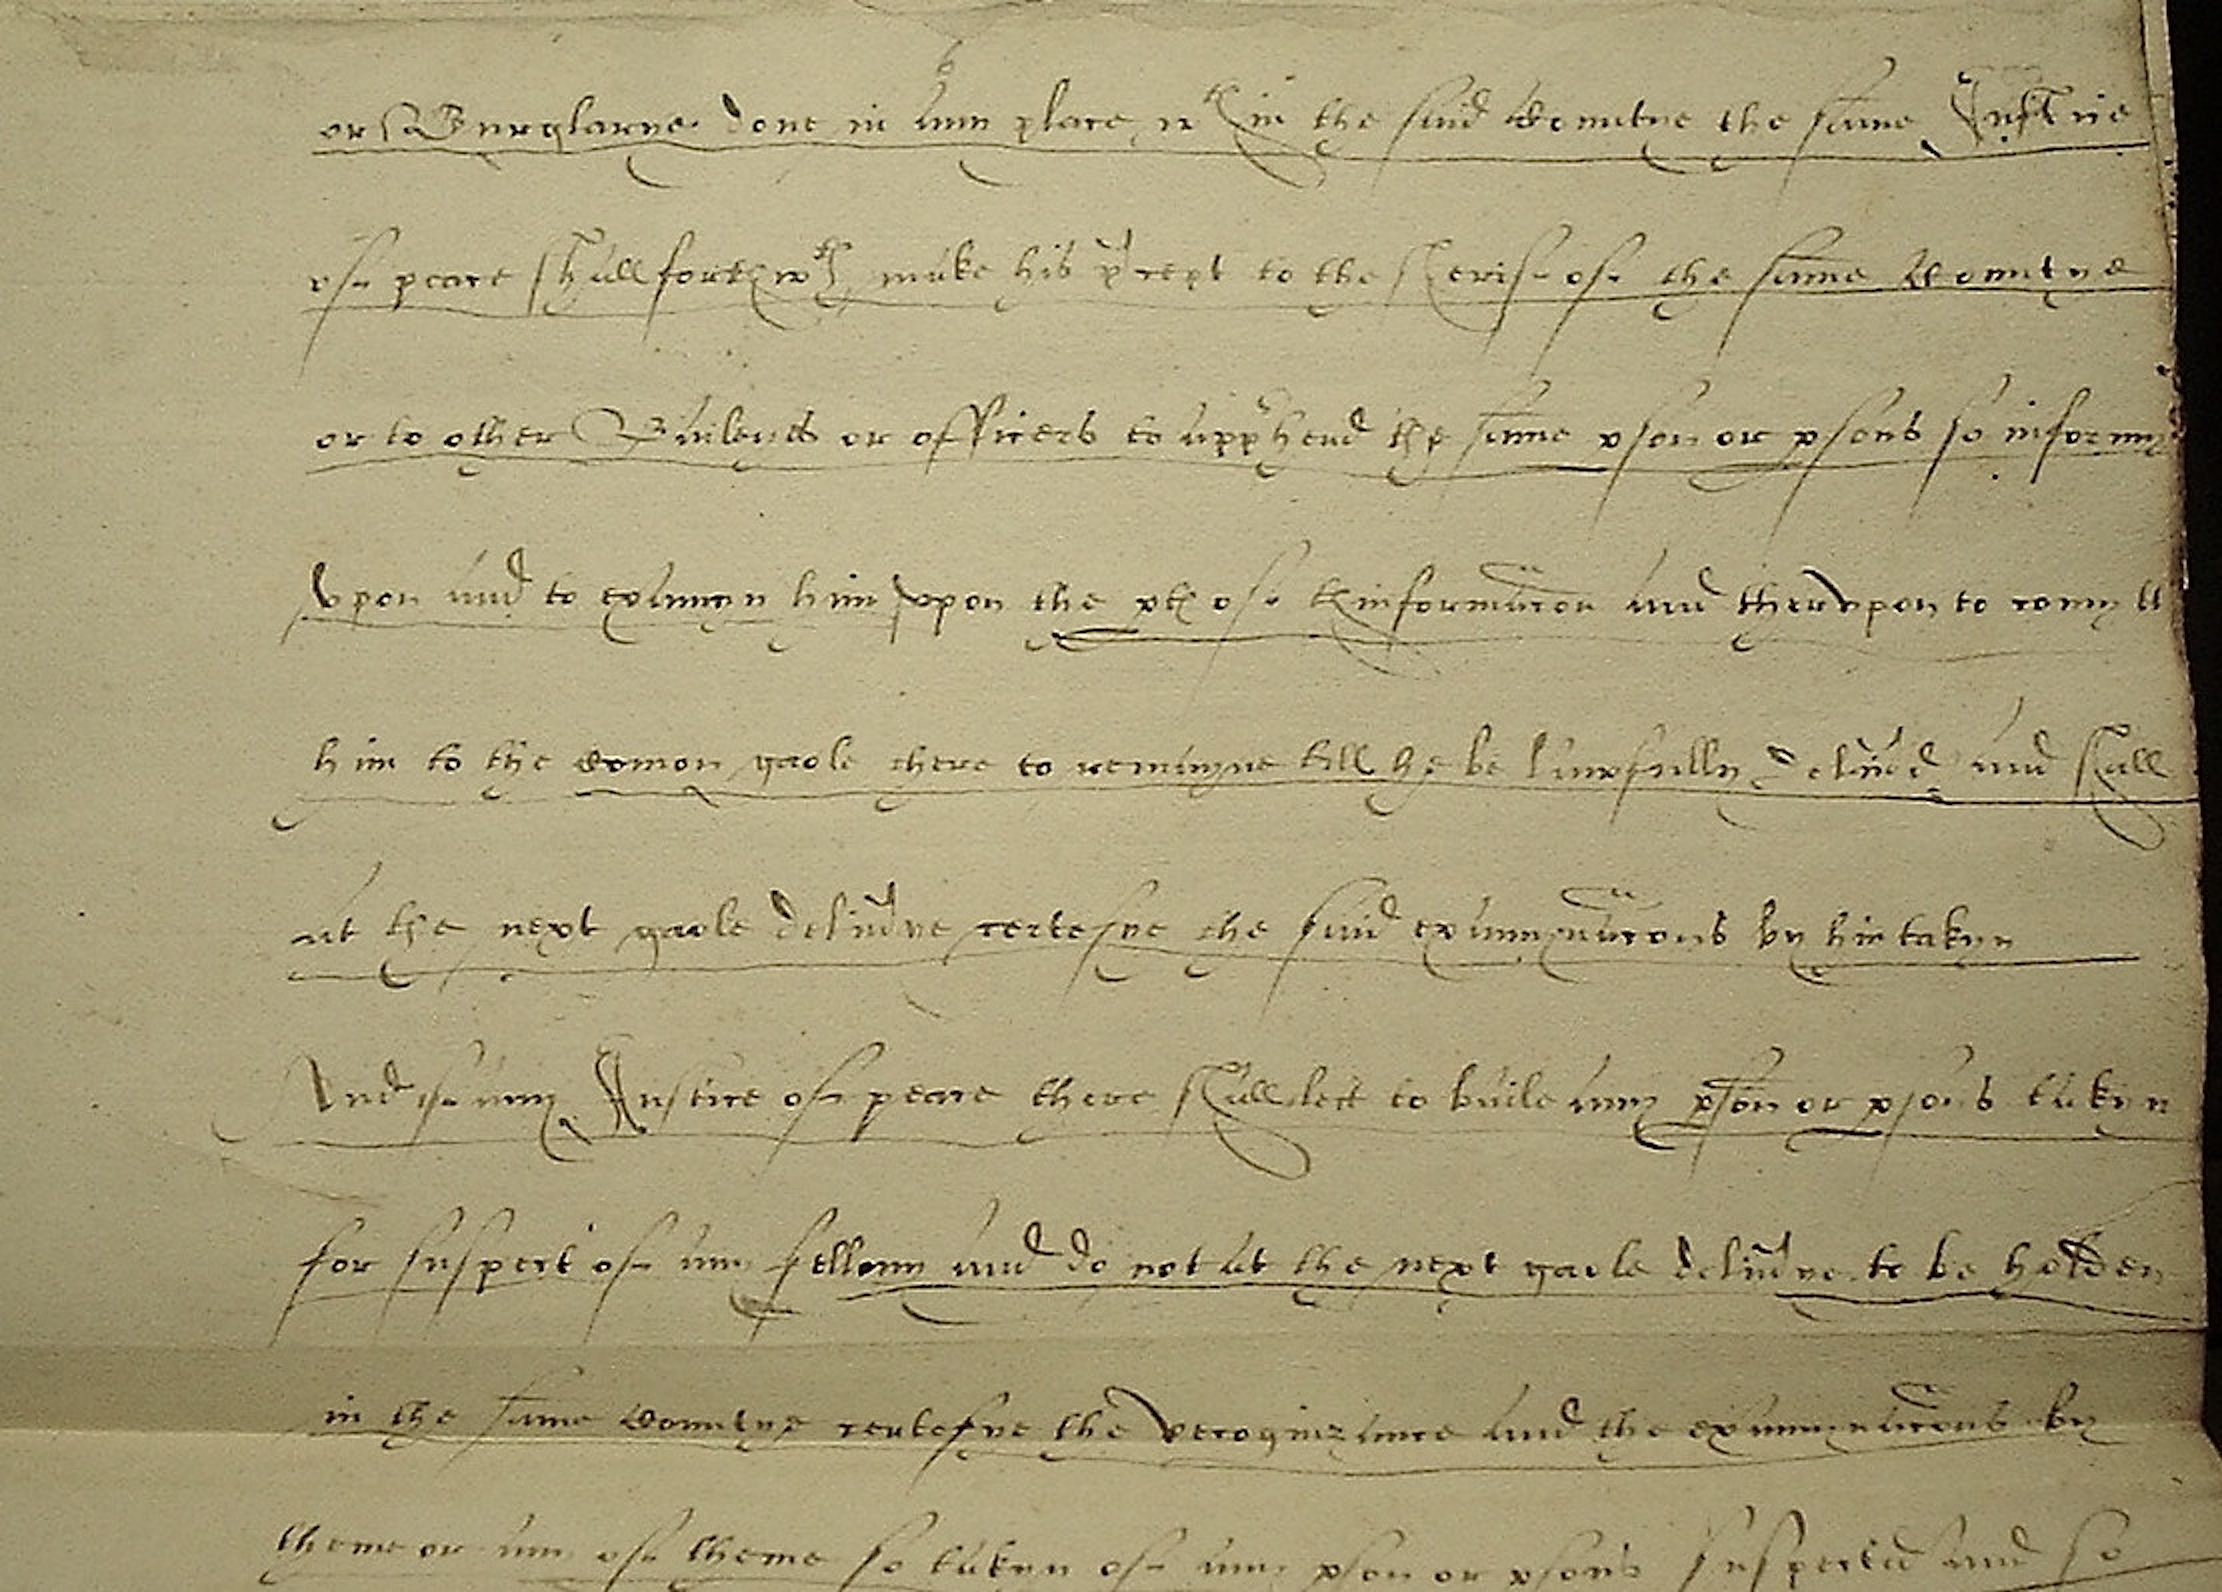 or Burglarye done in any place wthin the said Countye the same Justice
of peace shall forthwth make his p'cept to the Sherif of the same Countye
or to other Baileyffs or officers to app'hend the same pson or psons so informyd
vpon and to examyn him vpon the pte of thinformacon and thervpon to comytt
him to the comon gaole there to remayne till he be lawfully delivd and shall
at the next gaole delivye certefye the said examynacons by him takyn
And if any Justice of peace there shall lett to baile any pson or psons takyn
for suspect of any fellony and do not at the next gaole delivye to be holden
in the same Countye certefye the recognizance and the examynacons by
theme or any of theme so takyn of any pson or psons suspected and so